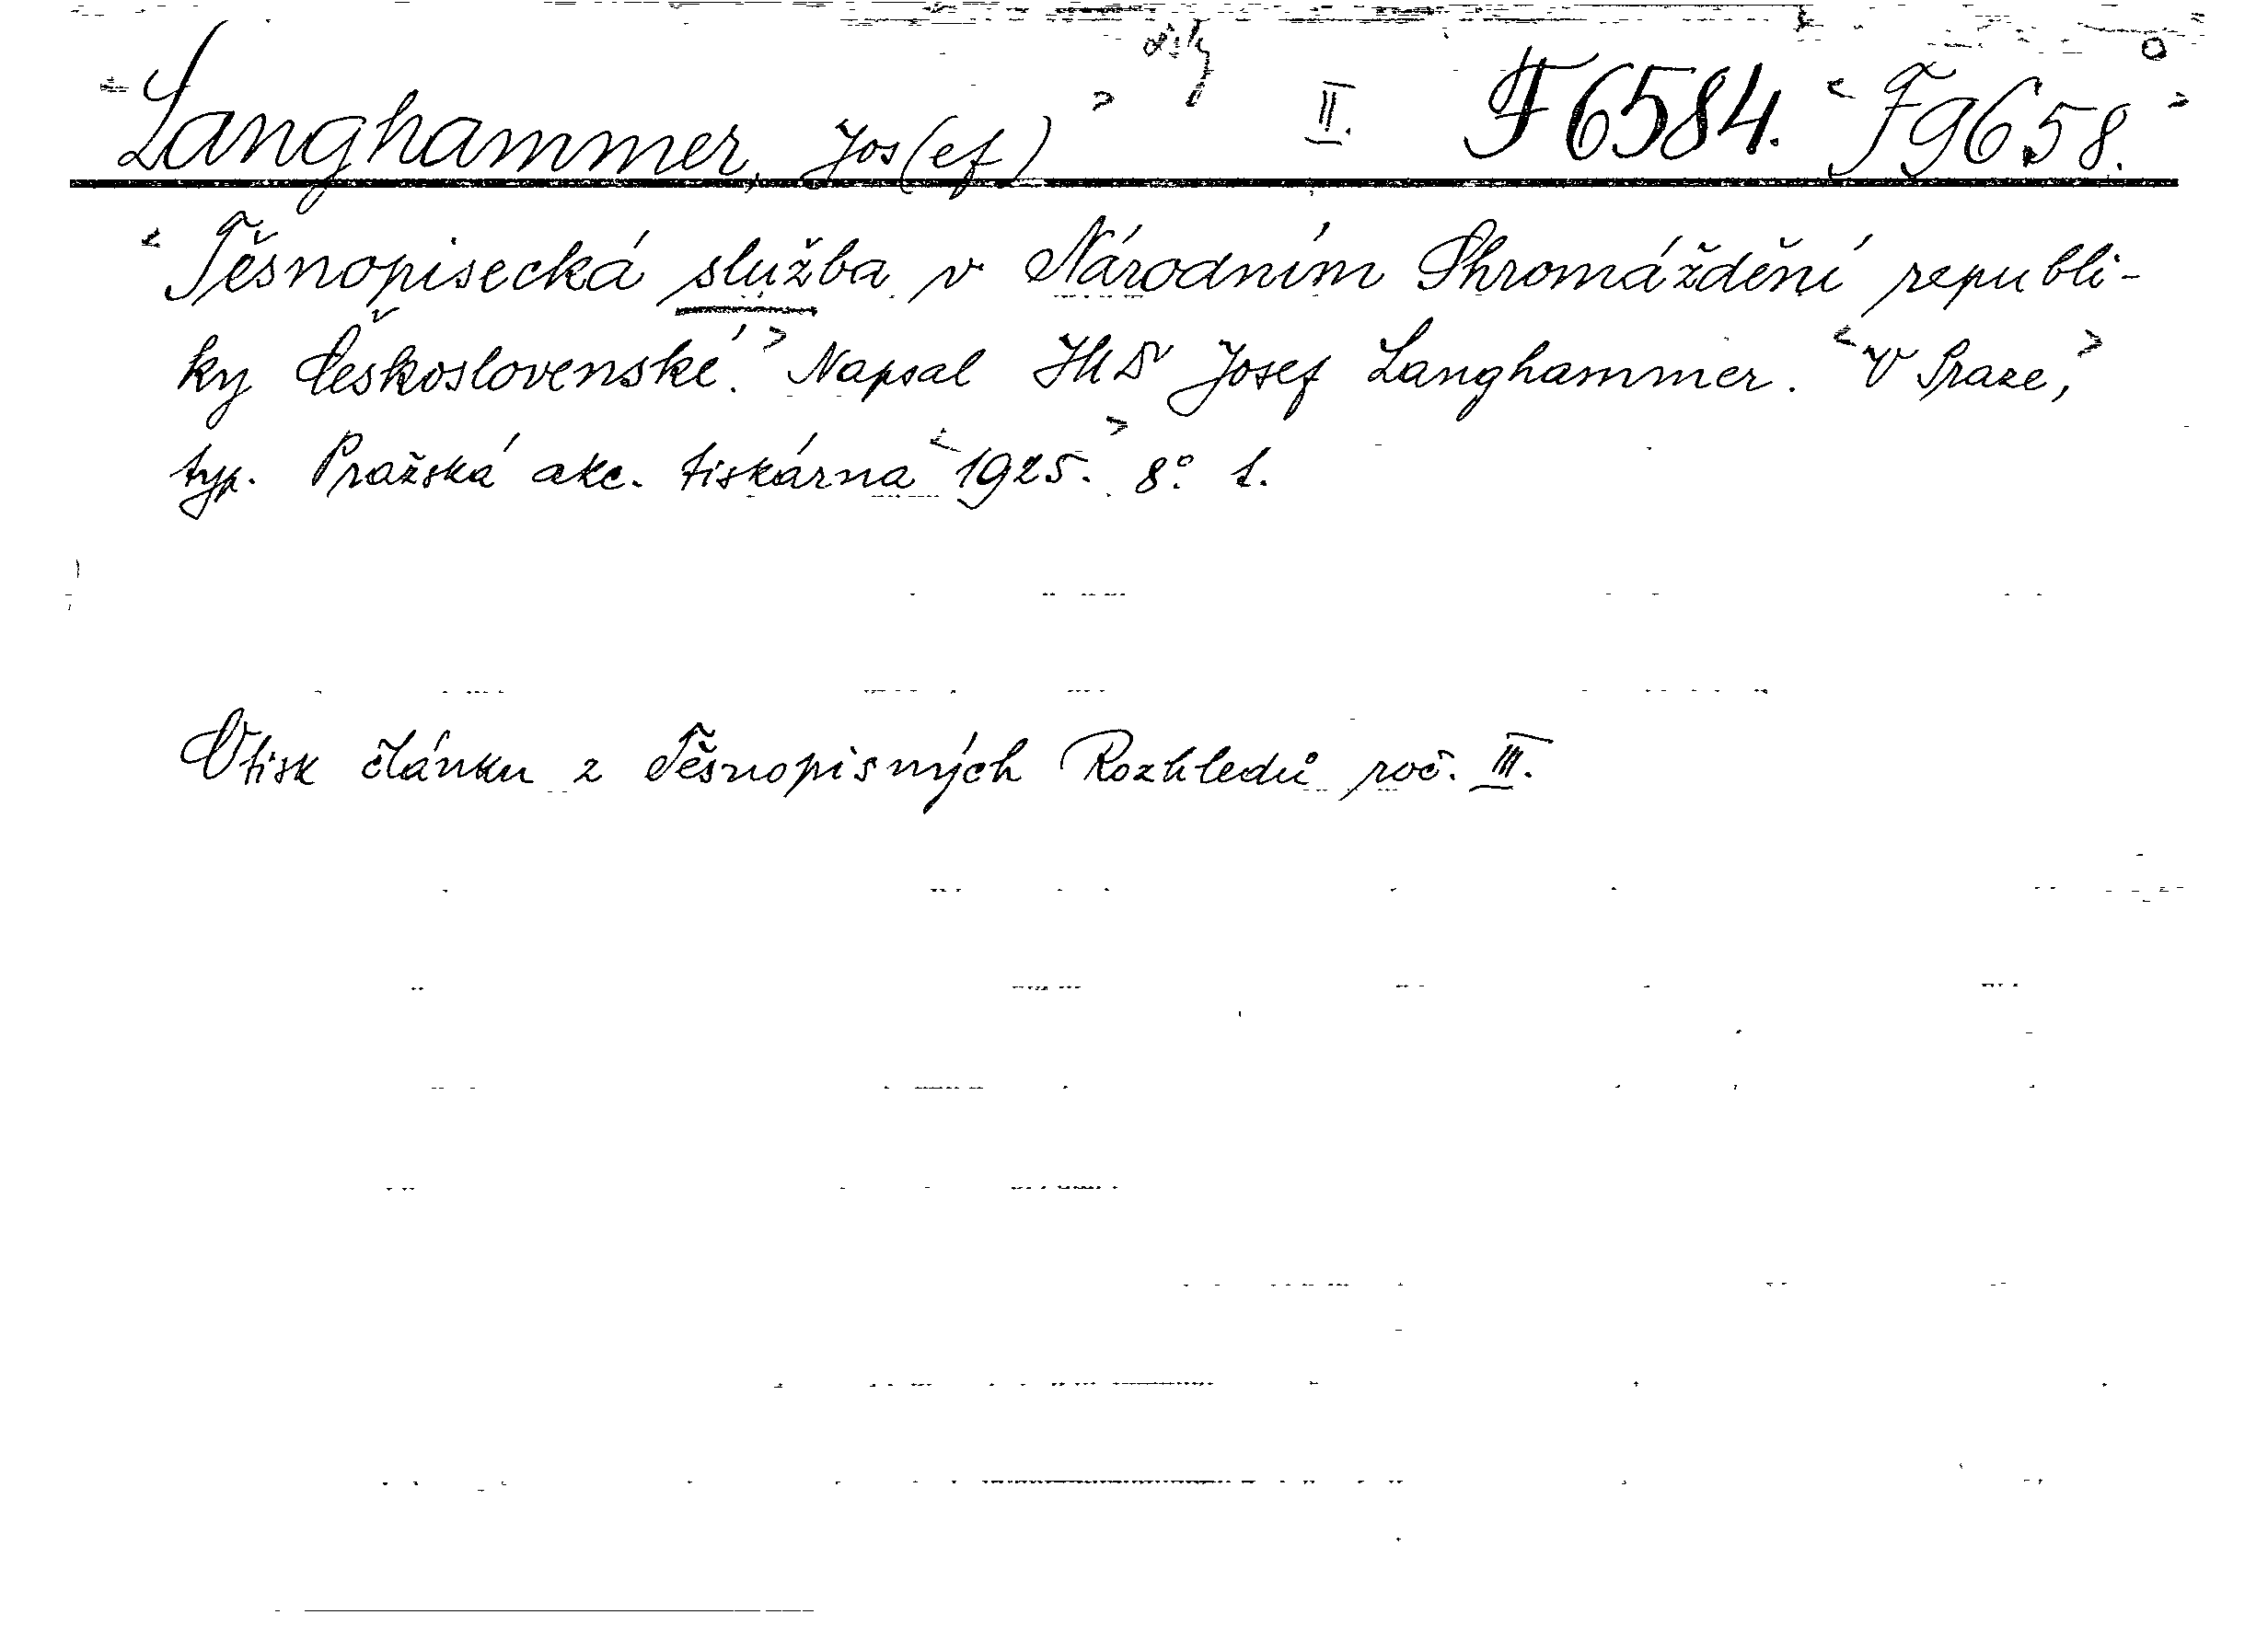 Langhammer, Jos(ef) II. F 6584. F 9658.
Těsnopisecká služba v Národním Shromáždění republi-
ky Československé. Napsal JUDr Josef Langhammer. V Praze,
typ. Pražská akc. tiskárna 1925. 8°. 1.
Otisk článku z Těsnopisných Rozhledů roč. III.